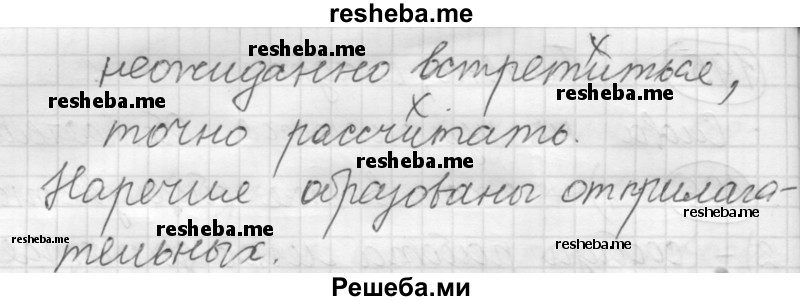 resheba.me
resheba.me
неожиданно встретиться,
resheba.me
resheba.me
х
точно рассчитать.
х
resheba.me
Наречие образованы от прилага-
resheba.me
resheba.me
resheba.me
resheba.me
тельных.
Решеба.ми